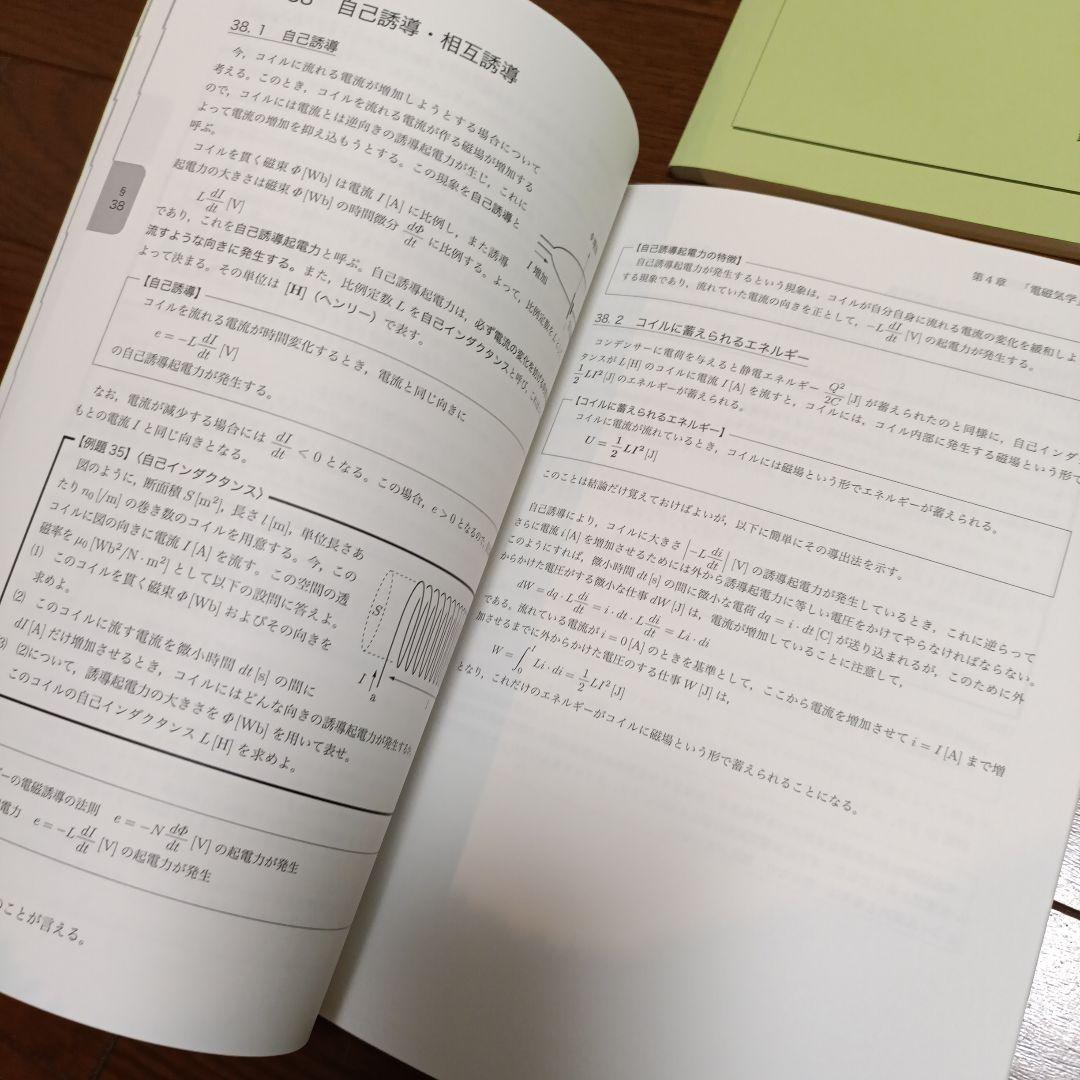 38 自己誘導・相互誘導
38.1 自己誘導
今，コイルに流れる電流が増加しようとする場合について
考える。このとき，コイルを流れる電流が作る磁場が増加する
ので，コイルには電流とは逆向きの誘導起電力が生じ，これに
よって電流の増加を抑え込もうとする。この現象を自己誘導と
呼ぶ。
コイルを貫く磁束Φ[Wb]は電流I[A]に比例し，また誘導
起電力の大きさは磁束Φ[Wb]の時間微分 dΦ/dt に比例する。よって，比例定数を
L dI/dt [V]
であり，これを自己誘導起電力と呼ぶ。自己誘導起電力は，必ず電流の変化を
流すような向きに発生する。また，比例定数Lを自己インダクタンスと呼び，
よって決まる。その単位は[H]（ヘンリー）で表す。
I増加
§
38
【自己誘導】
コイルを流れる電流が時間変化するとき，電流と同じ向きに
e=−L dI/dt [V]
の自己誘導起電力が発生する。
なお，電流が減少する場合には dI/dt <0となる。この場合，e>0となるので，
もとの電流Iと同じ向きとなる。
【例題35】〈自己インダクタンス〉
図のように，断面積S[m²]，長さl[m]，単位長さあ
たりn₀[/m]の巻き数のコイルを用意する。今，この
コイルに図の向きに電流I[A]を流す。この空間の透
磁率をμ₀[Wb²/N·m²]として以下の設問に答えよ。
(1) このコイルを貫く磁束Φ[Wb]およびその向きを
求めよ。
(2) このコイルに流す電流を微小時間dt[s]の間に
dI[A]だけ増加させるとき，コイルにはどんな向きの誘導起電力が発生するか。
(3) (2)について，誘導起電力の大きさをΦ[Wb]を用いて表せ。
このコイルの自己インダクタンスL[H]を求めよ。
S
I
a
ーの電磁誘導の法則 e=−N dΦ/dt [V]の起電力が発生
電力 e=−L dI/dt [V]の起電力が発生
のことが言える。
第4章 「電磁気学」
【自己誘導起電力の特徴】
自己誘導起電力が発生するという現象は，コイルが自分自身に流れる電流の変化を緩和しよ
する現象であり，流れていた電流の向きを正として，−L dI/dt [V]の起電力が発生する。
38.2 コイルに蓄えられるエネルギー
コンデンサーに電荷を与えると静電エネルギー Q²/2C [J]が蓄えられたのと同様に，自己インダ
タンスがL[H]のコイルに電流I[A]を流すと，コイルには，コイル内部に発生する磁場という形で
1/2 LI²[J]のエネルギーが蓄えられる。
【コイルに蓄えられるエネルギー】
コイルに電流が流れているとき，コイルには磁場という形でエネルギーが蓄えられる。
U=1/2 LI²[J]
このことは結論だけ覚えておけばよいが，以下に簡単にその導出法を示す。
自己誘導により，コイルに大きさ |−L di/dt| [V]の誘導起電力が発生しているとき，これに逆らって
さらに電流i[A]を増加させるためには外から誘導起電力に等しい電圧をかけてやらなければならない。
このようにすれば，微小時間dt[s]の間に微小な電荷dq=i·dt[C]が送り込まれるが，このために外
からかけた電圧がする微小な仕事dW[J]は，電流が増加していることに注意して，
dW=dq·L di/dt=i·dt·L di/dt=Li·di
である。流れている電流がi=0[A]のときを基準として，ここから電流を増加させてi=I[A]まで増
加させるまでに外からかけた電圧のする仕事W[J]は，
W=∫₀ᴵ Li·di=1/2 LI²[J]
となり，これだけのエネルギーがコイルに磁場という形で蓄えられることになる。